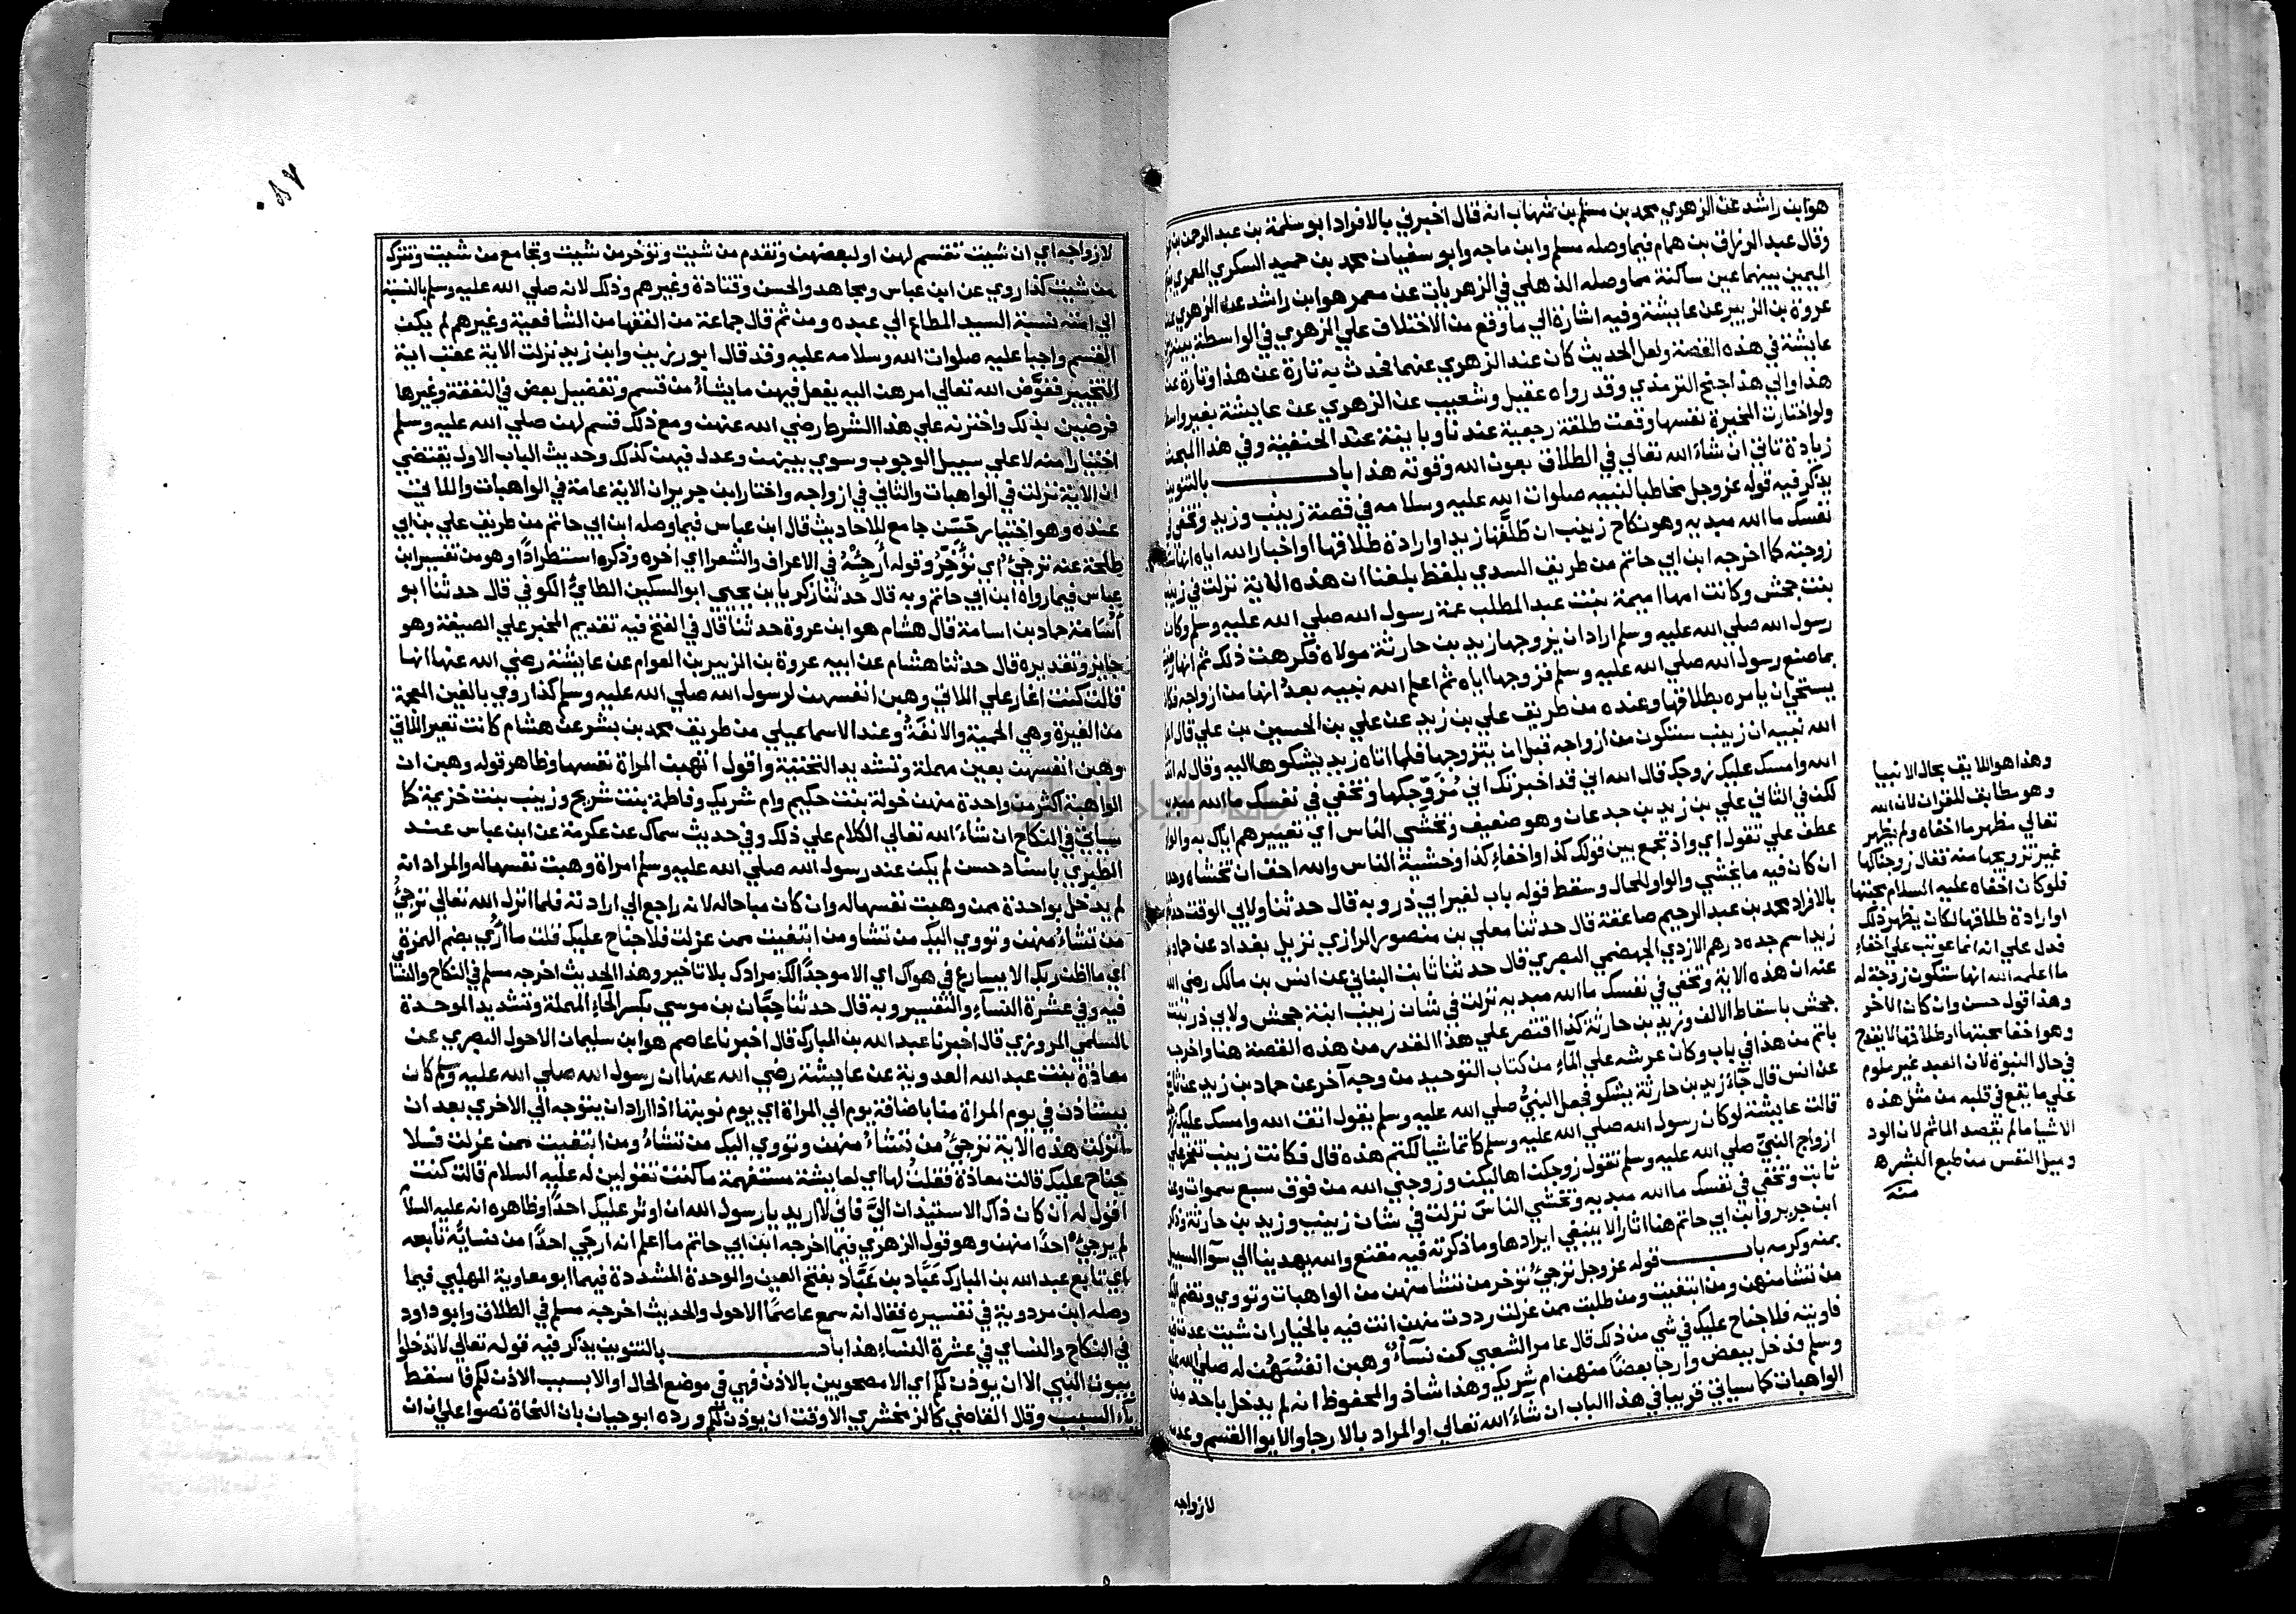 هو ابن راشد عن الزهري محمد بن مسلم بن شهاب انه قال اخبرني بالافراد ابو سلمة بن عبد الرحمن بن
وقال عبد الرزاق بن همام فيما وصله مسلم وابن ماجه وابو سفيان محمد بن حميد السكري المعمري
الميمين بينهما عين ساكنة مما وصله الذهلي في الزهريات عن معمر هو ابن راشد عن الزهري عن
عروة بن الزبير عن عايشة وفيه اشارة الي ما وقع من الاختلاف علي الزهري في الواسطة بينه وبين
عايشة في هذه القصة ولعل الحديث كان عند الزهري عنهما فحدث به تارة عن هذا وتارة عن
هذا والي هذا جنح الترمذي وقد رواه عقيل وشعيب عن الزهري عن عايشة بغير واسطة
ولو اختارت المخيرة نفسها وقعت طلقة رجعية عندنا وباينة عند الحنفية وفي هذا المبحث
زيادة تاتي ان شاء الله تعالي في الطلاق بعون الله وقوته هذا باب بالتنوين
يذكر فيه قوله عز وجل مخاطبا لنبيه صلوات الله عليه وسلامه في قصة زينب وزيد وتخفي في
نفسك ما الله مبديه وهو نكاح زينب ان طلقها زيد او ارادة طلاقها او اخبار الله اياه انها ستصير
زوجته كما اخرجه ابن ابي حاتم من طريق السدي بلفظ بلغنا ان هذه الاية نزلت في زينب
بنت جحش وكانت امها اميمة بنت عبد المطلب عمة رسول الله صلي الله عليه وسلم وكان
رسول الله صلي الله عليه وسلم اراد ان يزوجها زيد بن حارثة مولاه فكرهت ذلك ثم انها رضيت
بما صنع رسول الله صلي الله عليه وسلم فزوجها اياه ثم اعلم الله نبيه بعد انها من ازواجه فكان
يستحي ان يامره بطلاقها وعنده من طريق علي بن زيد عن علي بن الحسين بن علي قال اعلم
الله نبيه ان زينب ستكون من ازواجه قبل ان يتزوجها فلما اتاه زيد يشكوها اليه وقال له اتق
الله وامسك عليك زوجك قال الله اني قد اخبرتك اني مزوجكها وتخفي في نفسك ما الله مبديه
لكن في الثاني علي بن زيد بن جدعان وهو ضعيف وتخشي الناس اي تعييرهم اياك به والواو
عطف علي تقول اي واذ تجمع بين قولك كذا واخفاء كذا وخشية الناس والله احق ان تخشاه وحده
ان كان فيه ما يخشي والواو للحال وسقط قوله باب لغير ابي ذر وبه قال حدثنا ولابي الوقت حدثني
بالافراد محمد بن عبد الرحيم صاعقة قال حدثنا معلي بن منصور الرازي نزيل بغداد عن حماد بن
زيد اسم جده درهم الازدي الجهضمي البصري قال حدثنا ثابت البناني عن انس بن مالك رضي الله
عنه ان هذه الاية وتخفي في نفسك ما الله مبديه نزلت في شان زينب ابنة جحش ولابي ذر بنت
جحش باسقاط الالف وزيد بن حارثة كذا اقتصر علي هذا القدر من هذه القصة هنا واخرجه
باتم من هذا في باب وكان عرشه علي الماء من كتاب التوحيد من وجه آخر عن حماد بن زيد عن ثابت
عن انس قال جاء زيد بن حارثة يشكو فجعل النبي صلي الله عليه وسلم يقول اتق الله وامسك عليك زوجك
قالت عايشة لو كان رسول الله صلي الله عليه وسلم كاتما شيا لكتم هذه قال فكانت زينب تفخر علي
ازواج النبي صلي الله عليه وسلم تقول زوجكن اهاليكن وزوجني الله من فوق سبع سموات وعن
ثابت وتخفي في نفسك ما الله مبديه وتخشي الناس نزلت في شان زينب وزيد بن حارثة وذكر
ابن جرير وابن ابي حاتم هنا اثارا لا ينبغي ايرادها وما ذكرته فيه مقنع والله يهدينا الي سوآ السبيل
بمنه وكرمه باب قوله عز وجل ترجي تؤخر من تشا منهن من الواهبات وتووي وتضم اليك
من تشا منهن ومن ابتغيت ومن طلبت ممن عزلت رددت منهن انت فيه بالخيار ان شيت عدت فيه
فاويته فلا جناح عليك في شي من ذلك قال عامر الشعبي كن نساء وهبن انفسهن له صلي الله عليه
وسلم فدخل ببعض وارجا بعضا منهن ام شريك وهذا شاذ والمحفوظ انه لم يدخل باحد من
الواهبات كما سياتي قريبا في هذا الباب ان شاء الله تعالي او المراد بالارجا والايوا القسم وعدمه
لازواجه
وهذا هو اللايق بحال الانبيا
وهو مطابق للقران لان الله
تعالي مظهر ما اخفاه ولم يظهر
غير تزويجها منه فقال زوجناكها
فلو كان اخفاه عليه السلام محبتها
او ارادة طلاقها لكان يظهر ذلك
فدل علي انه انما عوتب علي اخفاء
ما اعلمه الله انها ستكون زوجة له
وهذا قول حسن وان كان الاخر
وهو اخفا محبتها او طلاقها لا يقدح
في حال النبوة لان العبد غير ملوم
علي ما يقع في قلبه من مثل هذه
الاشيا ما لم يقصد الماثم لان الود
وميل النفس من طبع البشر ه
منه
لازواجه اي ان شيت تقسم لهن او لبعضهن وتقدم من شيت وتؤخر من شيت وتجامع من شيت وتترك
من شيت كذا روي عن ابن عباس ومجاهد والحسن وقتادة وغيرهم وذلك لانه صلي الله عليه وسلم بالنسبة
الي امته نسبة السيد المطاع الي عبده ومن ثم قال جماعة من الفقها من الشافعية وغيرهم لم يكن
القسم واجبا عليه صلوات الله وسلامه عليه وقد قال ابو رزين وابن زيد نزلت الاية عقب اية
التخيير ففوض الله تعالي امرهن اليه يفعل فيهن ما يشاء من قسم وتفضيل بعض في النفقة وغيرها
فرضين بذلك واخترنه علي هذا الشرط رضي الله عنهن ومع ذلك قسم لهن صلي الله عليه وسلم
اختيارا منه لا علي سبيل الوجوب وسوي بينهن وعدل فيهن كذلك وحديث الباب الاول يقتضي
ان الاية نزلت في الواهبات والثاني في ازواجه واختار ابن جرير ان الاية عامة في الواهبات واللاتي
عنده وهو اختيار حسن جامع للاحاديث قال ابن عباس فيما وصله ابن ابي حاتم من طريق علي بن ابي
طلحة عنه ترجي اي تؤخر وقوله ارجئه في الاعراف والشعرا اي اخره وذكره استطرادا وهو من تفسير ابن
عباس فيما رواه ابن ابي حاتم وبه قال حدثنا زكريا بن يحيي ابو السكين الطائي الكوفي قال حدثنا ابو
أسامة حماد بن اسامة قال هشام هو ابن عروة حدثنا قال في الفتح فيه تقديم المخبر علي الصيغة وهو
جايز وتقديره قال حدثنا هشام عن ابيه عروة بن الزبير بن العوام عن عايشة رضي الله عنها انها
قالت كنت اغار علي اللاتي وهبن انفسهن لرسول الله صلي الله عليه وسلم كذا روي بالغين المعجمة
من الغيرة وهي الحمية والانفة وعند الاسماعيلي من طريق محمد بن بشر عن هشام كانت تعير اللاتي
وهبن انفسهن بعين مهملة وتشديد التحتية واقول اتهب المراة نفسها وظاهر قوله وهبن ان
الواهبة اكثر من واحدة منهن خولة بنت حكيم وام شريك وفاطمة بنت شريح وزينب بنت خزيمة كما
سياتي في النكاح ان شاء الله تعالي الكلام علي ذلك وفي حديث سماك عن عكرمة عن ابن عباس عند
الطبري باسناد حسن لم يكن عند رسول الله صلي الله عليه وسلم امراة وهبت نفسها له والمراد انه
لم يدخل بواحدة ممن وهبت نفسها له وان كان مباحا له لانه راجع الي ارادته فلما انزل الله تعالي ترجئ
من تشاء منهن وتووي اليك من تشا ومن ابتغيت ممن عزلت فلا جناح عليك قلت ما أري بضم الهمزة
اي ما اظن ربك الا يسارع في هواك اي الا موجدا لك مرادك بلا تاخير وهذا الحديث اخرجه مسلم في النكاح والنسائي
فيه وفي عشرة النساء والتفسير وبه قال حدثنا حبان بن موسي بكسر الحاء المهملة وتشديد الموحدة
السلمي المروزي قال اخبرنا عبد الله بن المبارك قال اخبرنا عاصم هو ابن سليمان الاحول البصري عن
معاذة بنت عبد الله العدوية عن عايشة رضي الله عنها ان رسول الله صلي الله عليه وسلم كان
يستاذن في يوم المراة منا باضافة يوم الي المراة اي يوم نوبتها اذا اراد ان يتوجه الي الاخري بعد ان
انزلت هذه الاية ترجئ من تشاء منهن وتووي اليك من تشاء ومن ابتغيت ممن عزلت فلا
جناح عليك قالت معاذة فقلت لها اي لعايشة مستفهمة ما كنت تقولين له عليه السلام قالت كنت
اقول له ان كان ذاك الاستيذان الي فاني لا اريد يا رسول الله ان اوثر عليك احدا وظاهره انه عليه السلام
لم يرجئ احدا منهن وهو قول الزهري فيما اخرجه ابن ابي حاتم ما اعلم انه ارجي احدا من نسايه تابعه
اي تابع عبد الله بن المبارك عباد بن عباد بفتح العين والموحدة المشددة فيهما ابو معاوية المهلبي فيما
وصله ابن مردوية في تفسيره فقال انه سمع عاصما الاحول والحديث اخرجه مسلم في الطلاق وابو داود
في النكاح والنساي في عشرة النساء هذا باب بالتنوين يذكر فيه قوله تعالي لا تدخلوا
بيوت النبي الا ان يوذن لكم اي الا مصحوبين بالاذن فهي في موضع الحال او الا بسبب الاذن لكم فاسقط
باء السبب وقال القاضي كالزمخشري الا وقت ان يوذن لكم ورده ابو حيان بان النحاة نصوا علي ان ان